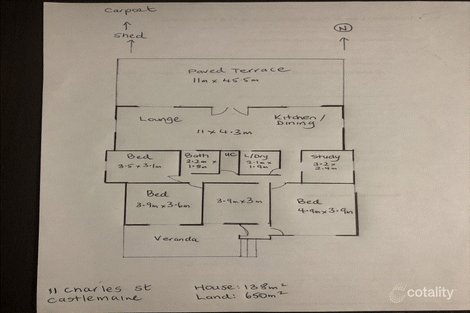 Carport
Shed
N
Paved Terrace
11m x 45.5m
Lounge
Kitchen/
Dining
11 x 4.3m
Bed
3.5 x 3.1m
Bath
2.2m x
1.8m
WC
L/Dry
Study
Bed
3.9m x 3.6m
3.9m x 3m
Bed
4.9m x 3.9m
Veranda
11 Charles St
Castlemaine
House: 138m²
Land: 650m²
cotality